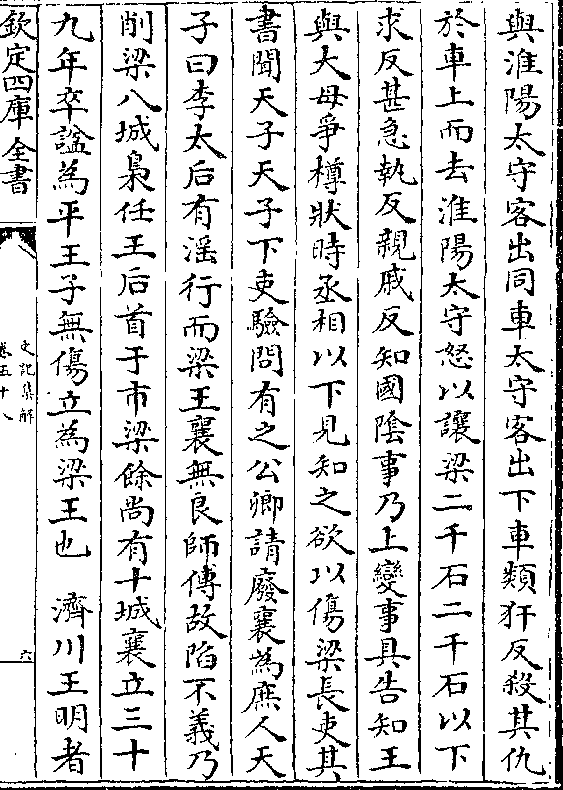 與淮陽太守客出同車太守客出下車類犴反殺其仇
於車上而去淮陽太守怒以讓梁二千石二千石以下
求反甚急執反親戚反知國隂事乃上變事具告知王
與大母爭樽狀時丞相以下見知之欲以傷梁長吏其
書聞天子天子下吏驗問有之公卿請廢襄為庶人天
子曰李太后有滛行而梁王襄無良師傅故陷不義乃
削梁八城梟任王后首于市梁餘尚有十城襄立三十
九年卒諡為平王子無傷立為梁王也　濟川王明者
欽定四庫全書
史記集解
卷五十八
六